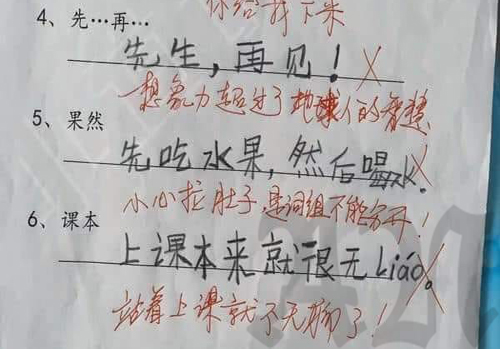 你给我下来
4、先…再…
先生，再见！
想象力超过了地球人的智慧
5、果然
先吃水果，然后喝水。
小心拉肚子，是词组不能分开！
6、课本
上课本来就很无Liáo。
站着上课就不无聊了！